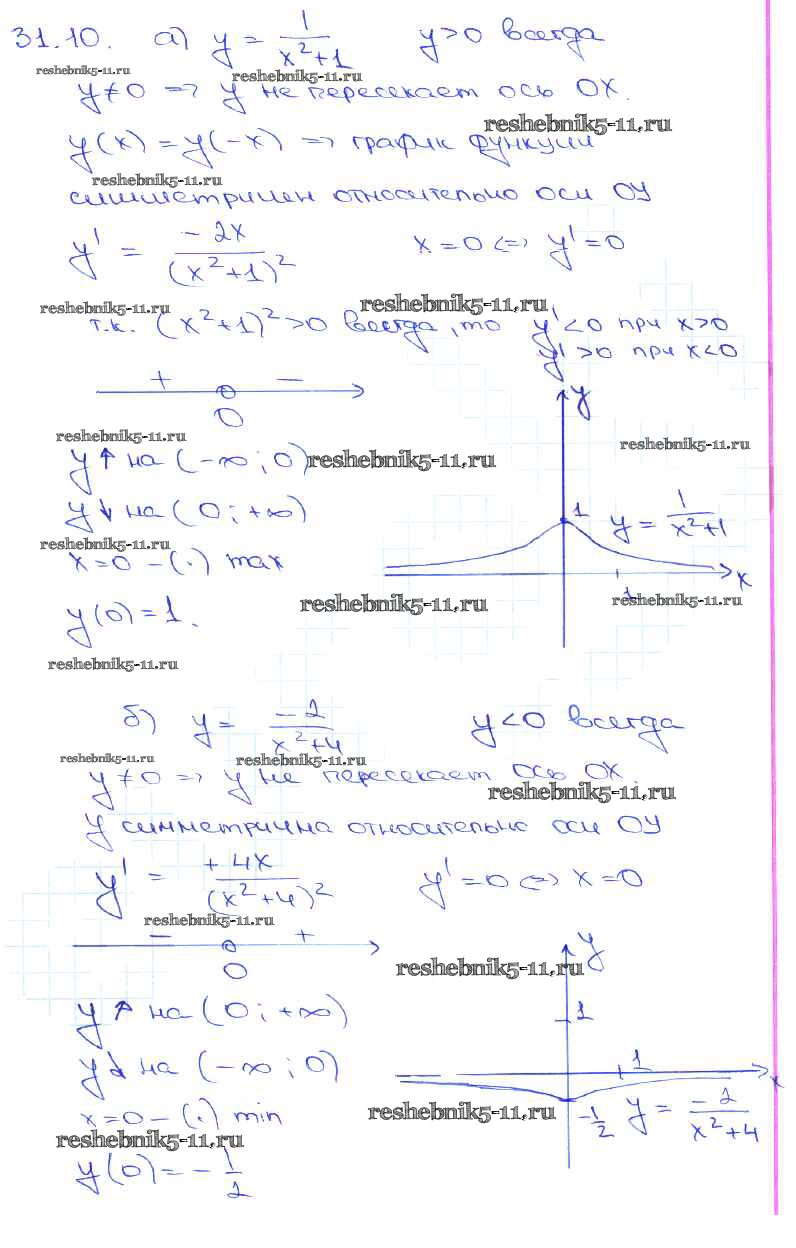 31.10. а) y = 1/(x²+1) y>0 всегда
reshebnik5-11.ru reshebnik5-11.ru
y≠0 => y не пересекает ось OX.
reshebnik5-11.ru
y(x) = y(-x) => график функции
reshebnik5-11.ru
симметричен относительно оси OY
y' = -2x/(x²+1)² x=0 <=> y'=0
reshebnik5-11.ru reshebnik5-11.ru
т.к. (x²+1)²>0 всегда, то y'<0 при x>0
y'>0 при x<0
+ −
0
y
reshebnik5-11.ru reshebnik5-11.ru
y↑ на (-∞; 0) reshebnik5-11.ru
y↓ на (0; +∞)
1 y = 1/(x²+1)
reshebnik5-11.ru
x=0 – (·) max
x
reshebnik5-11.ru 1 reshebnik5-11.ru
y(0)=1.
reshebnik5-11.ru
б) y = -2/(x²+4) y<0 всегда
reshebnik5-11.ru reshebnik5-11.ru
y≠0 => y не пересекает ось OX.
reshebnik5-11.ru
y симметрична относительно оси OY
y' = +4x/(x²+4)² y'=0 <=> x=0
reshebnik5-11.ru
− +
0
y
reshebnik5-11.ru
y↑ на (0; +∞)
1
y↓ на (-∞; 0)
1
x
x=0 – (·) min
reshebnik5-11.ru
-1/2 y = -2/(x²+4)
reshebnik5-11.ru
y(0) = -1/2